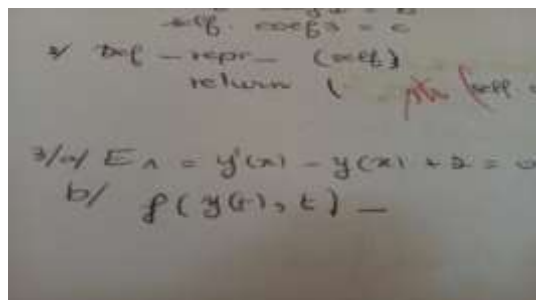 self. coef3 = c
2/ Def _repr_ (self)
return ( str (self
3/a/ E1 = y'(x) - y(x) + 2 = 0
b/ f(y(t), t) _